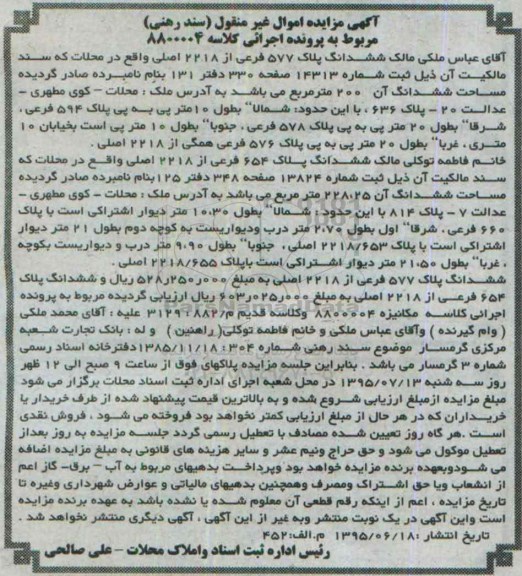 آگهی مزایده اموال غیر منقول (سند رهنی)
مربوط به پرونده اجرائی کلاسه ۸۸۰۰۰۰۴
آقای عباس ملکی مالک ششدانگ پلاک ۵۷۷ فرعی از ۲۲۱۸ اصلی واقع در محلات که سند
مالکیت آن ذیل ثبت شماره ۱۴۳۱۳ صفحه ۳۳۰ دفتر ۱۳۱ بنام نامبرده صادر گردیده
مساحت ششدانگ آن ۲۰۰ مترمربع می باشد به آدرس ملک : محلات - کوی مطهری -
عدالت ۲۰ - پلاک ۶۳۶ ، با این حدود: شمالا" بطول ۱۰ متر پی به پی پلاک ۵۹۴ فرعی ،
شرقا" بطول ۲۰ متر پی به پی پلاک ۵۷۸ فرعی ، جنوبا" بطول ۱۰ متر پی است بخیابان ۱۰
متری ، غربا" بطول ۲۰ متر پی به پی پلاک ۵۷۶ فرعی همگی از ۲۲۱۸ اصلی .
خانم فاطمه توکلی مالک ششدانگ پلاک ۶۵۴ فرعی از ۲۲۱۸ اصلی واقع در محلات که
سند مالکیت آن ذیل ثبت شماره ۱۳۸۲۴ صفحه ۳۴۸ دفتر ۱۲۵ بنام نامبرده صادر گردیده
مساحت ششدانگ آن ۲۲۸.۲۵ متر مربع می باشد به آدرس ملک : محلات - کوی مطهری -
عدالت ۷ - پلاک ۸۱۴ با این حدود: شمالا" بطول ۱۰.۳۰ متر دیوار اشتراکی است با پلاک
۶۶۰ فرعی . شرقا" اول بطول ۲.۷۰ متر درب ودیواریست به کوچه دوم بطول ۲۱ متر دیوار
اشتراکی است با پلاک ۲۲۱۸/۶۵۳ اصلی . جنوبا" بطول ۹.۹۰ متر درب و دیواریست بکوچه
، غربا" بطول ۲۱.۵۰ متر دیوار اشتراکی است باپلاک ۲۲۱۸/۶۵۵ اصلی .
ششدانگ پلاک ۵۷۷ فرعی از ۲۲۱۸ اصلی به مبلغ ۵۲۸٫۲۵۰٫۰۰۰ ریال و ششدانگ پلاک
۶۵۴ فرعی از ۲۲۱۸ اصلی به مبلغ ۶۰۳٫۰۲۵٫۰۰۰ ریال ارزیابی گردیده مربوط به پرونده
اجرائی کلاسه مکانیزه ۸۸۰۰۰۰۴ وکلاسه قدیم م/۱۸۸۲- ۳۱۲۹ علیه : آقای محمد ملکی
( وام گیرنده ) وآقای عباس ملکی و خانم فاطمه توکلی( راهنین ) و له : بانک تجارت شعبه
مرکزی گرمسار موضوع سند رهنی شماره ۳۰۴-۱۳۸۵/۱۱/۱۸ دفترخانه اسناد رسمی
شماره ۳ گرمسار می باشد . بنابراین جلسه مزایده پلاکهای فوق از ساعت ۹ صبح الی ۱۲ ظهر
روز سه شنبه ۱۳۹۵/۰۷/۱۳ در محل شعبه اجرای اداره ثبت اسناد محلات برگزار می شود
مبلغ مزایده ازمبلغ ارزیابی شروع شده و به بالاترین قیمت پیشنهاد شده از طرف خریدار یا
خریداران که در هر حال از مبلغ ارزیابی کمتر نخواهد بود فروخته می شود . فروش نقدی
است . هر گاه روز تعیین شده مصادف با تعطیل رسمی گردد جلسه مزایده به روز بعداز
تعطیل موکول می شود و حق حراج ونیم عشر و سایر هزینه های قانونی به مبلغ مزایده اضافه
می شودوبعهده برنده مزایده خواهد بود وپرداخت بدهیهای مربوط به آب - برق- گاز اعم
از انشعاب ویا حق اشتراک ومصرف وهمچنین بدهیهای مالیاتی و عوارض شهرداری وغیره تا
تاریخ مزایده ، اعم از اینکه رقم قطعی آن معلوم شده یا نشده باشد به عهده برنده مزایده
است واین آگهی در یک نوبت منتشر وبه غیر از این آگهی ، آگهی دیگری منتشر نخواهد شد .
تاریخ انتشار :۱۳۹۵/۰۶/۱۸ م.الف:۴۵۲
رئیس اداره ثبت اسناد واملاک محلات - علی صالحی